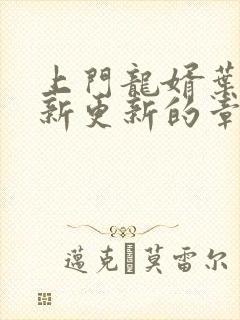 上門龍婿葉
新更新的章
邁克·莫雷尔